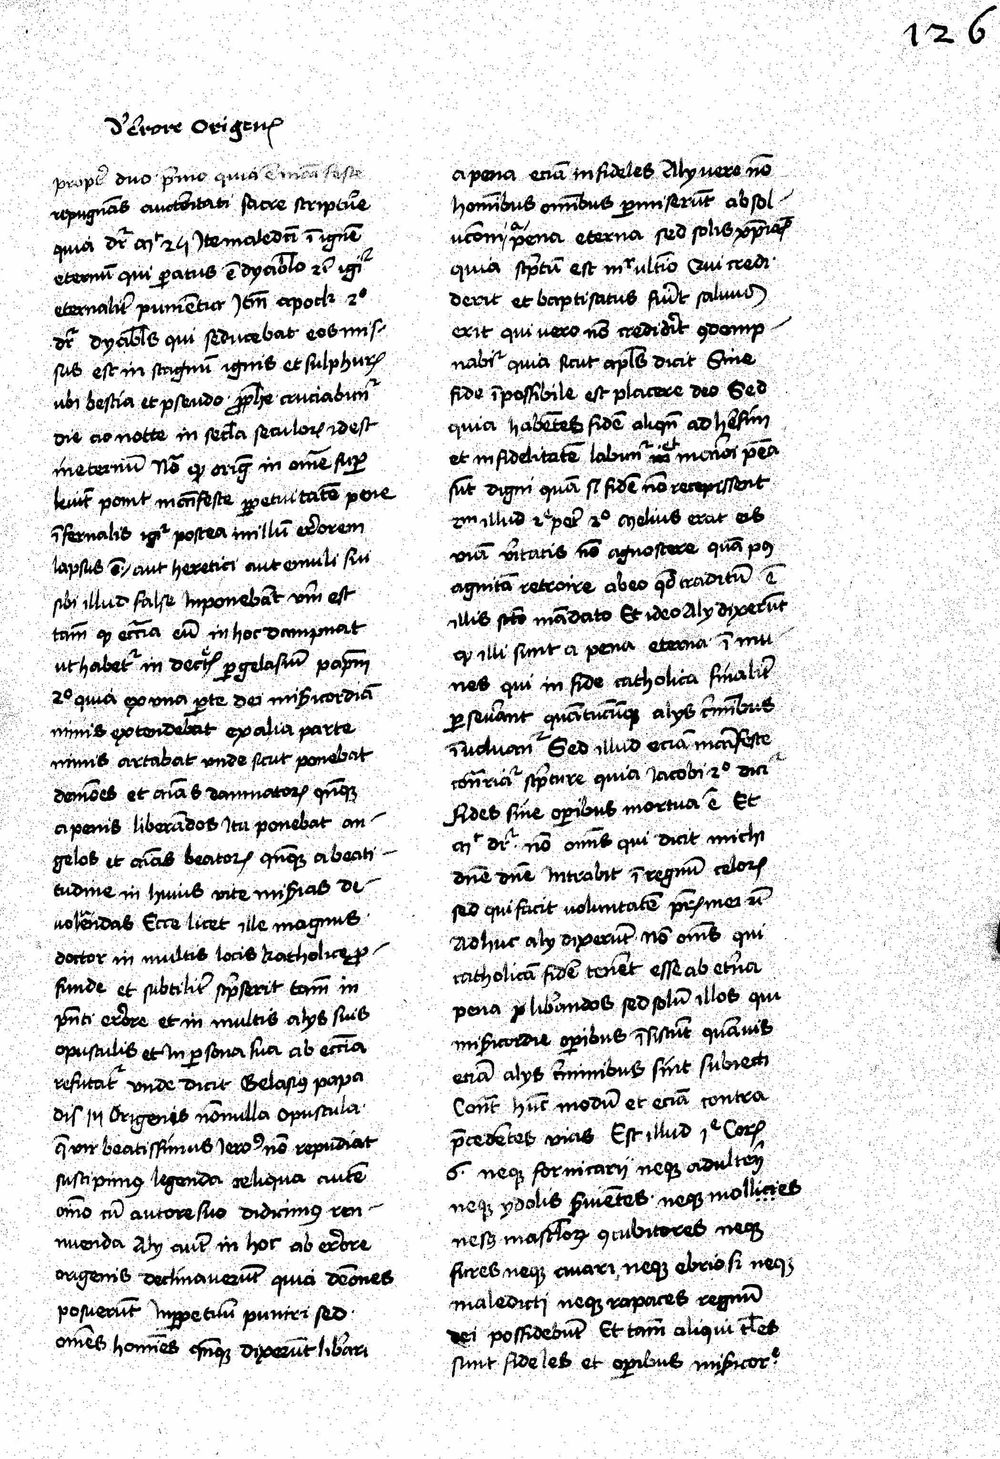 126
D' Errore Origenis
propter duo primo quia est manifeste
repugnans auctoritati sacre scripture
quia dr̄ mt 24 Ite maledicti ī ignē
eternū qui paratus ē dyabolo
eternaliter punientur Itē apoc 20
dr̄ dyabolus qui seducebat eos mis-
sus est in stagnū ignis et sulphuris
ubi bestia et pseudo prophete cruciabunt᷑
die ac notte in secula seculorum idest
in eternū
ponit manifeste perpetuitatē pene
īfernalis postea in illū errorem
lapsus ē aut heretici aut emuli sui
sibi illud false inponebāt
tam̄ q eccīa eū in hoc dampnat
ut habet᷑ in decretis per gelasiū papam
2º quia ex una parte dei misericordiā
nimis extendebat ex alia parte
nimis artabat unde sicut ponebat
demōes et aīas damnatorum qn̄q
a penis liberādos ita ponebat an-
gelos et aīas beatorum qn̄q a beati-
tudine in huius vite miserias de-
volvendas Ecce licet ille magnus
doctor in multis locis katholice pro-
funde et subtiliter scripserit tam̄ in
pn̄ti errore et in multis alys suis
opusculis et in persona sua ab eccīa
refutat᷑ unde dicit Gelasius papa
dis Origenis nōnulla opuscula
q̄ vir beatissimus Ieronimus nō repudiat
suscipimus legenda reliqua autē
omnino cū autore suo didicimus ren-
nuenda Aly autē in hoc ab errore
origenis declinaverūt quia demōes
posuerūt inperpetuū puniri sed
omēs homīes qn̄q dixerūt liberari
a pena eciā infideles Aly vero nō
hominibus omībus permiserūt absol-
pena eterna sed solis xpianis
quia scriptū est mr ultio Qui credi-
derit et baptisatus fuerit salvus
erit qui vero nō crediderit 9demp-
nabit᷑ quia sicut apl̄s dicit Sine
fide īpossibile est placere deo Sed
quia habentes fidē aliqn̄ ad heresim
et infidelitatē labunt᷑ et maiori pena
sūt digni quā si fidē nō recepissent
illud 2ª pet 2º Melius erat eis
viā veritatis nō agnoscere quā post
agnitā retroire ab eo qd traditū ē
illis sancto mādato Et ideo Aly dixerūt
q illi sunt a pena eterna īmu-
nes qui in fide catholica finaliter
perseverant quātūcunq alys criminibus
īvolvant᷑ Sed illud eciā manifeste
contrariat᷑ scripture quia Iacobi 2º dicit᷑
Fides sine operibus mortua ē Et
mt dr̄ nō omīs qui dicit michi
dn̄e dn̄e intrabit ī regnū celorum
sed qui facit voluntatē patris mei
Adhuc aly dixerūt nō omēs qui
catholicā fidē tenēt esse ab eterna
pena liberandos sed solū illos qui
misericordie operibus īsistūt quāvis
etiā alys criminibus sint subiecti
Cont hūc modū et eciā contra
precedētes vias Est illud 1ª Cor
6 neq fornicarij neq adulterij
neq ydolis servientes neq mollicies
neq masclorum 9cubitores neq
fures neq avari neq ebriosi neq
maledicti neq rapaces regnū
dei possidebūt Et tam̄ aliqui tales
sunt fideles et operibus misericor.e